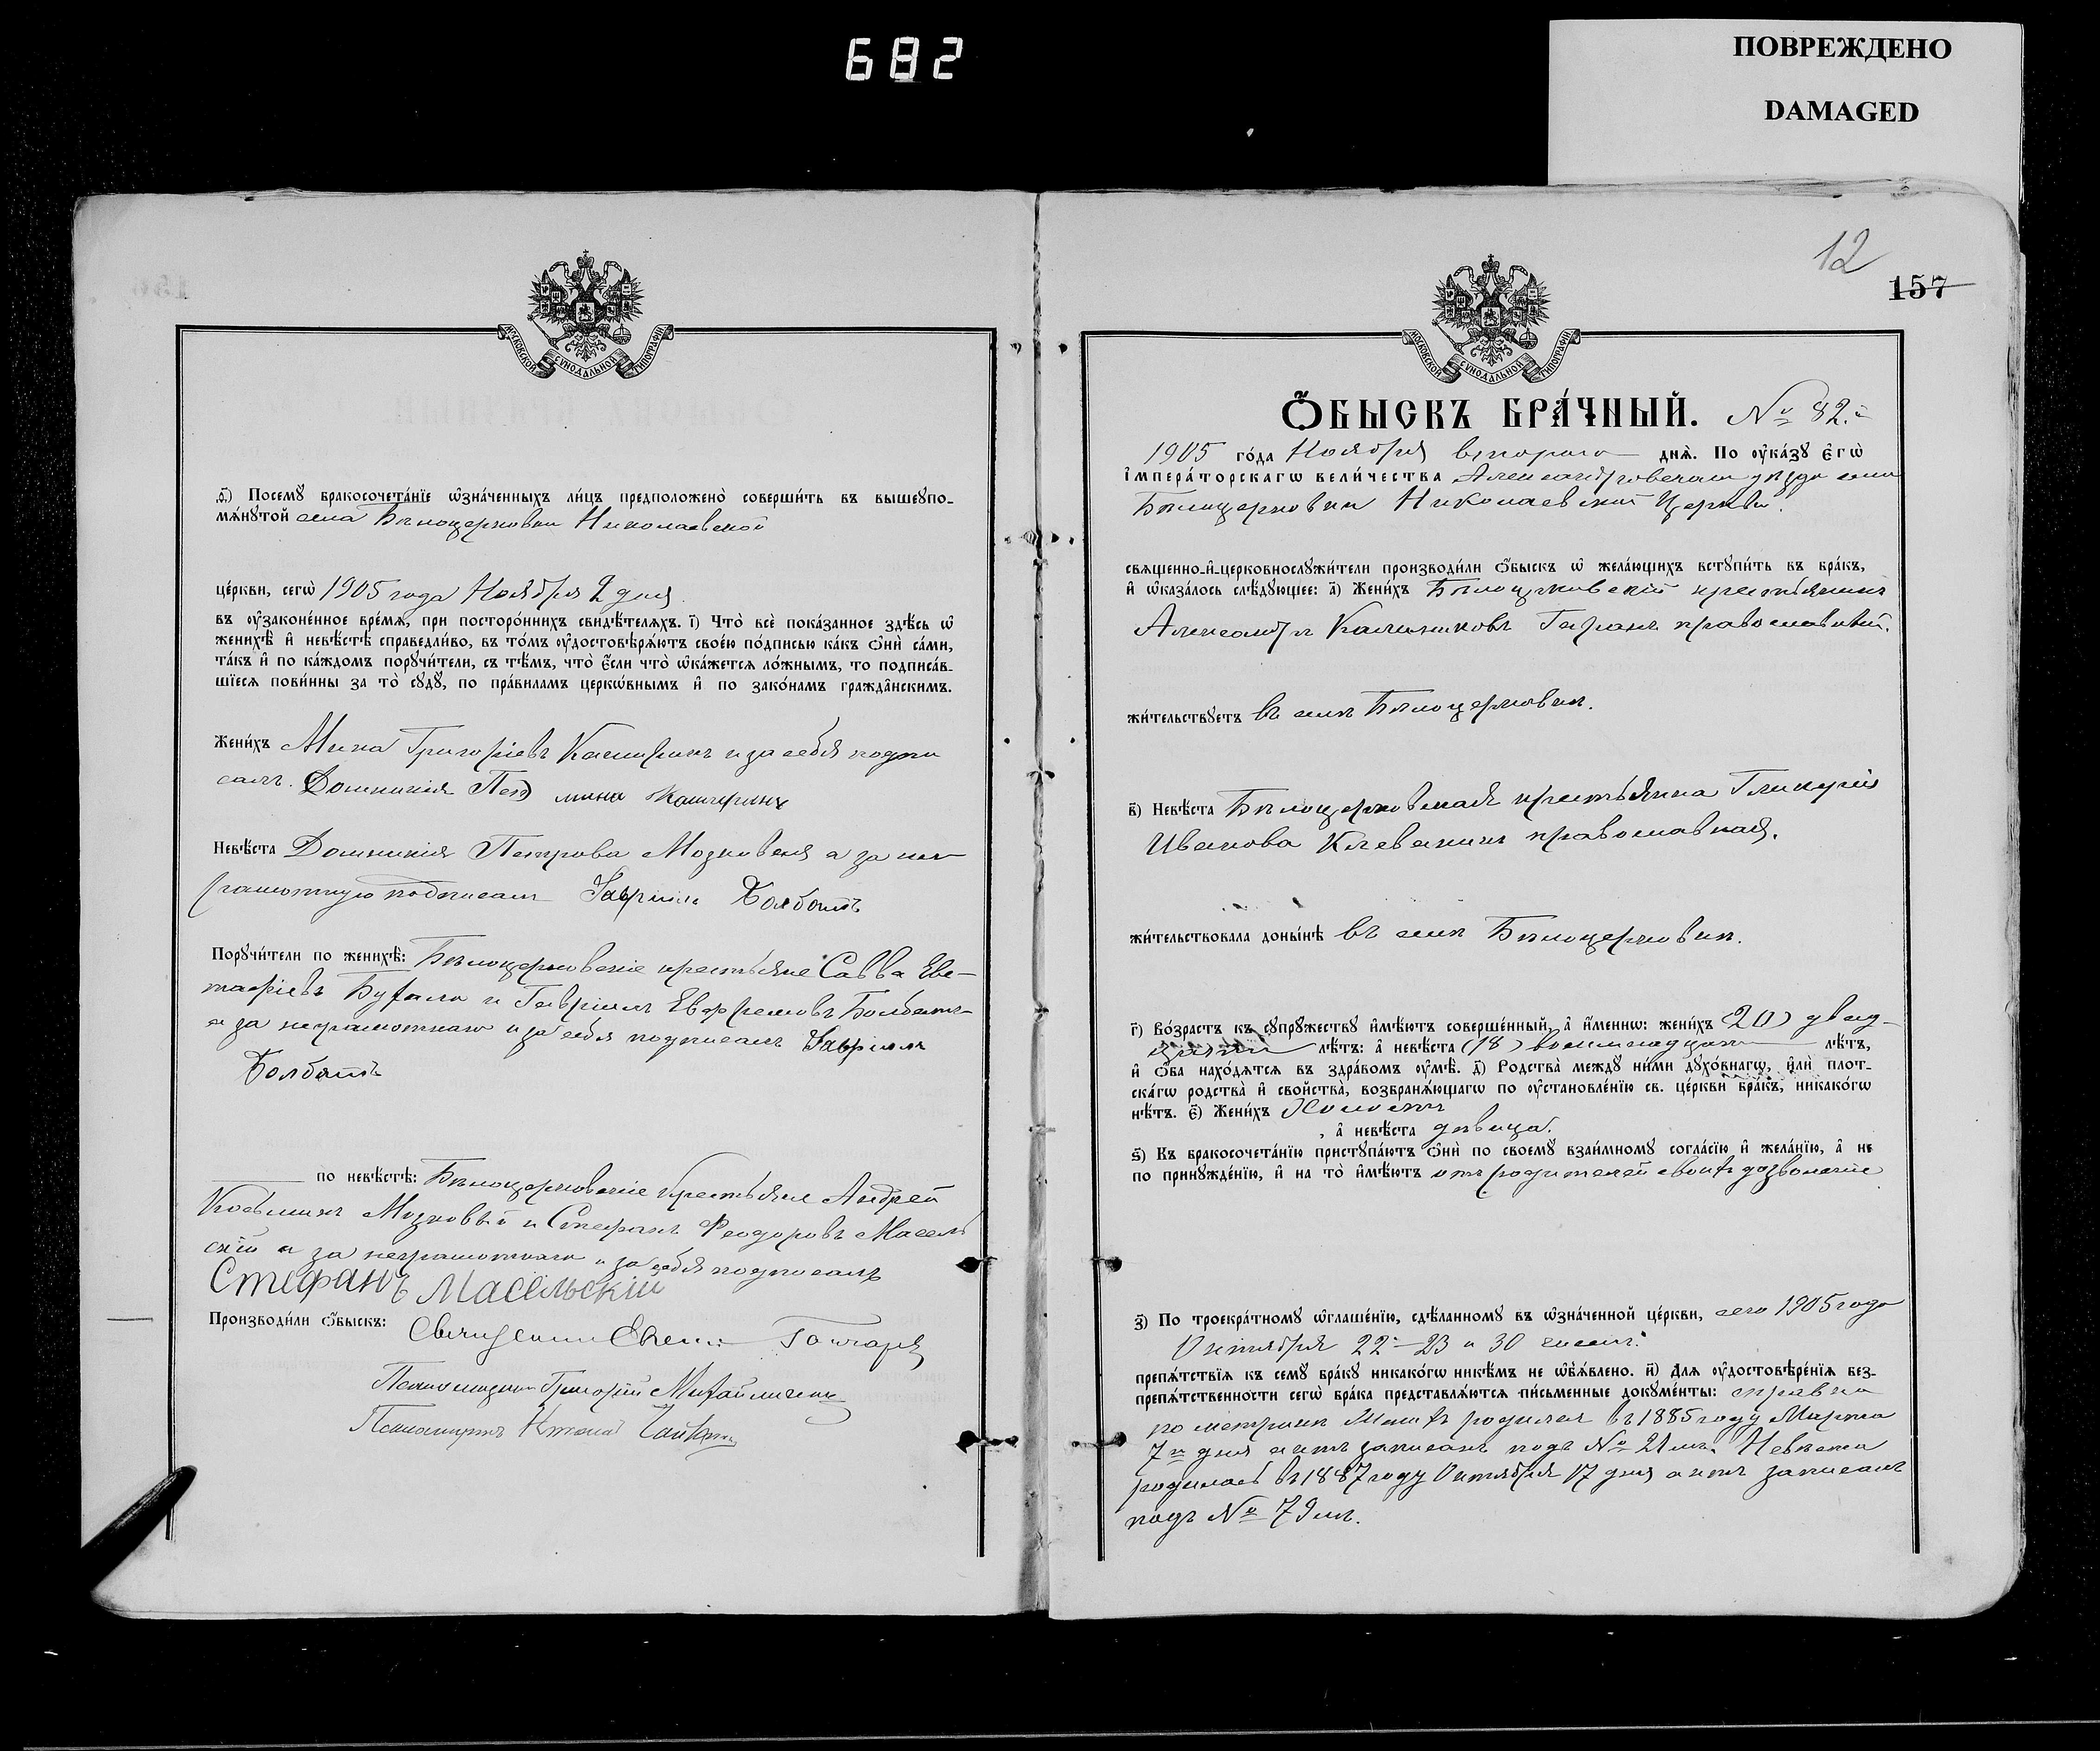 682
ПОВРЕЖДЕНО
DAMAGED
МОСКОВСКОЙ СѴНОДАЛЬНОЙ ТИПОГРАФІИ
ѳ҃) Посемꙋ бракосочета́нїе ѡ҆зна́ченныхъ ли́цъ предположено̀ соверши́ть въ вышеꙋпо-
мѧ́нꙋтой села Бѣлоцерковки Николаевской
це́ркви, сегѡ̀ 1905 года Ноября 2 дня
въ ᲂу҆зако́ненное вре́мѧ, при посторо́ннихъ свидѣ́телѧхъ. і҃) Что̀ всѐ пока́занное здѣ́сь ѡ҆
женихѣ̀ и҆ невѣ́стѣ справедли́во, въ то́мъ ᲂу҆достовѣрѧ́ютъ свое́ю по́дписью ка́къ ѻ҆нѝ са́ми,
та́къ и҆ по ка́ждомъ порꙋчи́тели, съ тѣ́мъ, что̀ є҆́сли что̀ ѡ҆ка́жетсѧ ло́жнымъ, то подписа́в-
шїесѧ пови́нны за то̀ сꙋдꙋ̀, по пра́виламъ церкѡ́внымъ и҆ по зако́намъ гражда́нскимъ.
Жени́хъ Мина Григоріевъ Каширинъ и за себя подпи
салъ. Домникія Пет мина Каширинъ
Невѣ́ста Домникія Петрова Мозковая а за не-
грамотную подписалъ Гавріилъ Болбатъ
Порꙋчи́тели по женихѣ̀: Бѣлоцерковскіе крестьяне Савва Евс-
тафіевъ и Гавріилъ Ефремовъ Болбатъ
а за неграмотнаго и за себя подписалъ Гавріилъ
Болбатъ
по невѣ́стѣ: Бѣлоцерковскіе крестьяне Андрей
Козьминъ Мозковый и Стефанъ Феодоровъ Масель
скій а за неграмотнаго и за себя подписалъ
Стефанъ Масельскій
Производи́ли ѻ҆́быскъ: Священникъ Гончаръ
Псаломщикъ Григорій Михайличенко
12
157
МОСКОВСКОЙ СѴНОДАЛЬНОЙ ТИПОГРАФІИ
Ѻ҆́БЫСКЪ БРА́ЧНЫЙ. № 82.й
1905 го́да Ноября второго днѧ̀. По ᲂу҆ка́зꙋ є҆гѡ̀
і҆мпера́торскагѡ вели́чества Александровскаго уѣзда села
Бѣлоцерковки Николаевской Церкви.
свѧще́нно-и҆-церковнослꙋжи́тели производи́ли ѻ҆́быскъ ѡ҆ жела́ющихъ встꙋпи́ть въ бра́къ,
и҆ ѡ҆каза́лось слѣ́дꙋющее: а҃) Жени́хъ Бѣлоцерковскій крестьянинъ
Александръ Калиниковъ Гаранъ православный.
жи́тельствꙋетъ въ селѣ Бѣлоцерковкѣ.
в҃) Невѣ́ста Бѣлоцерковская крестьянка Гликерія
Иванова православная.
жи́тельствовала доны́нѣ въ селѣ Бѣлоцерковкѣ.
г҃) Во́зрастъ къ сꙋпрꙋ́жествꙋ и҆мѣ́ютъ соверше́нный, а҆ и҆́меннѡ: жени́хъ (20) двад-
цати лѣ́тъ: а҆ невѣ́ста (18) восемнадцати лѣ́тъ,
и҆ ѻ҆́ба нахо́дѧтсѧ въ здра́вомъ ᲂу҆мѣ̀. д҃) Родства̀ междꙋ ни́ми дꙋхо́внагѡ, и҆лѝ плот-
ска́гѡ родства̀ и҆ свойства̀, возбранѧ́ющагѡ по ᲂу҆становле́нїю св. це́ркви бра́къ, никако́гѡ
нѣ́тъ. є҃) Жени́хъ Холостъ
, а҆ невѣ́ста дѣвица.
ѕ҃) Къ бракосочета́нїю пристꙋпа́ютъ ѻ҆нѝ по своемꙋ̀ взаи́мномꙋ согла́сїю и҆ жела́нїю, а҆ не
по принꙋжде́нїю, и҆ на то̀ и҆мѣ́ютъ отъ родителей своихъ дозволеніе
з҃) По троекра́тномꙋ ѡ҆глаше́нїю, сдѣ́ланномꙋ въ ѡ҆зна́ченной це́ркви, сего 1905 года
Октября 22-23 и 30 числѣ.
препѧ́тствїѧ къ семꙋ̀ бра́кꙋ никако́гѡ никѣ́мъ не ѡ҆б̾ѧ́влено. и҃) Длѧ ᲂу҆достовѣре́нїѧ без-
препѧ́тственности сегѡ̀ бра́ка представлѧ́ютсѧ пи́сьменные докꙋме́нты: справка
по метрикѣ Женихъ родился въ 1885 году Марта
7го дня актъ записанъ подъ № 21мъ. Невѣста
родилась въ 1887 году Октября 17 дня актъ записанъ
подъ № 79мъ.